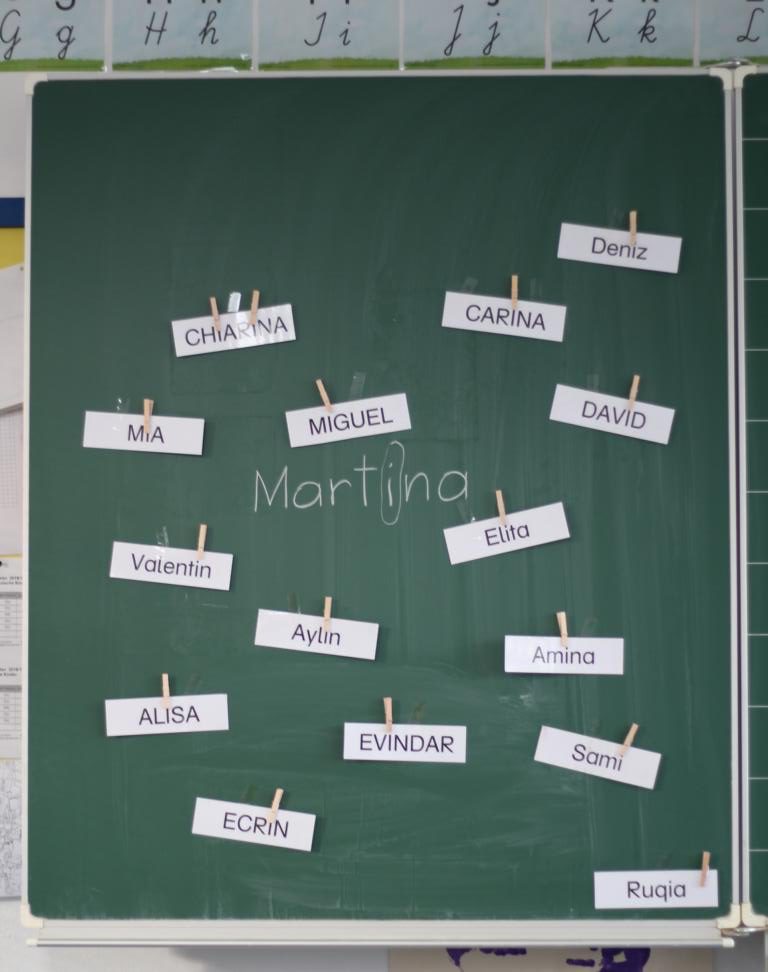 G g H h I i J j K k L
Deniz
CHIARINA
CARINA
MIGUEL
DAVID
MIA
Martina
Elita
Valentin
Aylin
Amina
ALISA
EVINDAR
Sami
ECRIN
Ruqia